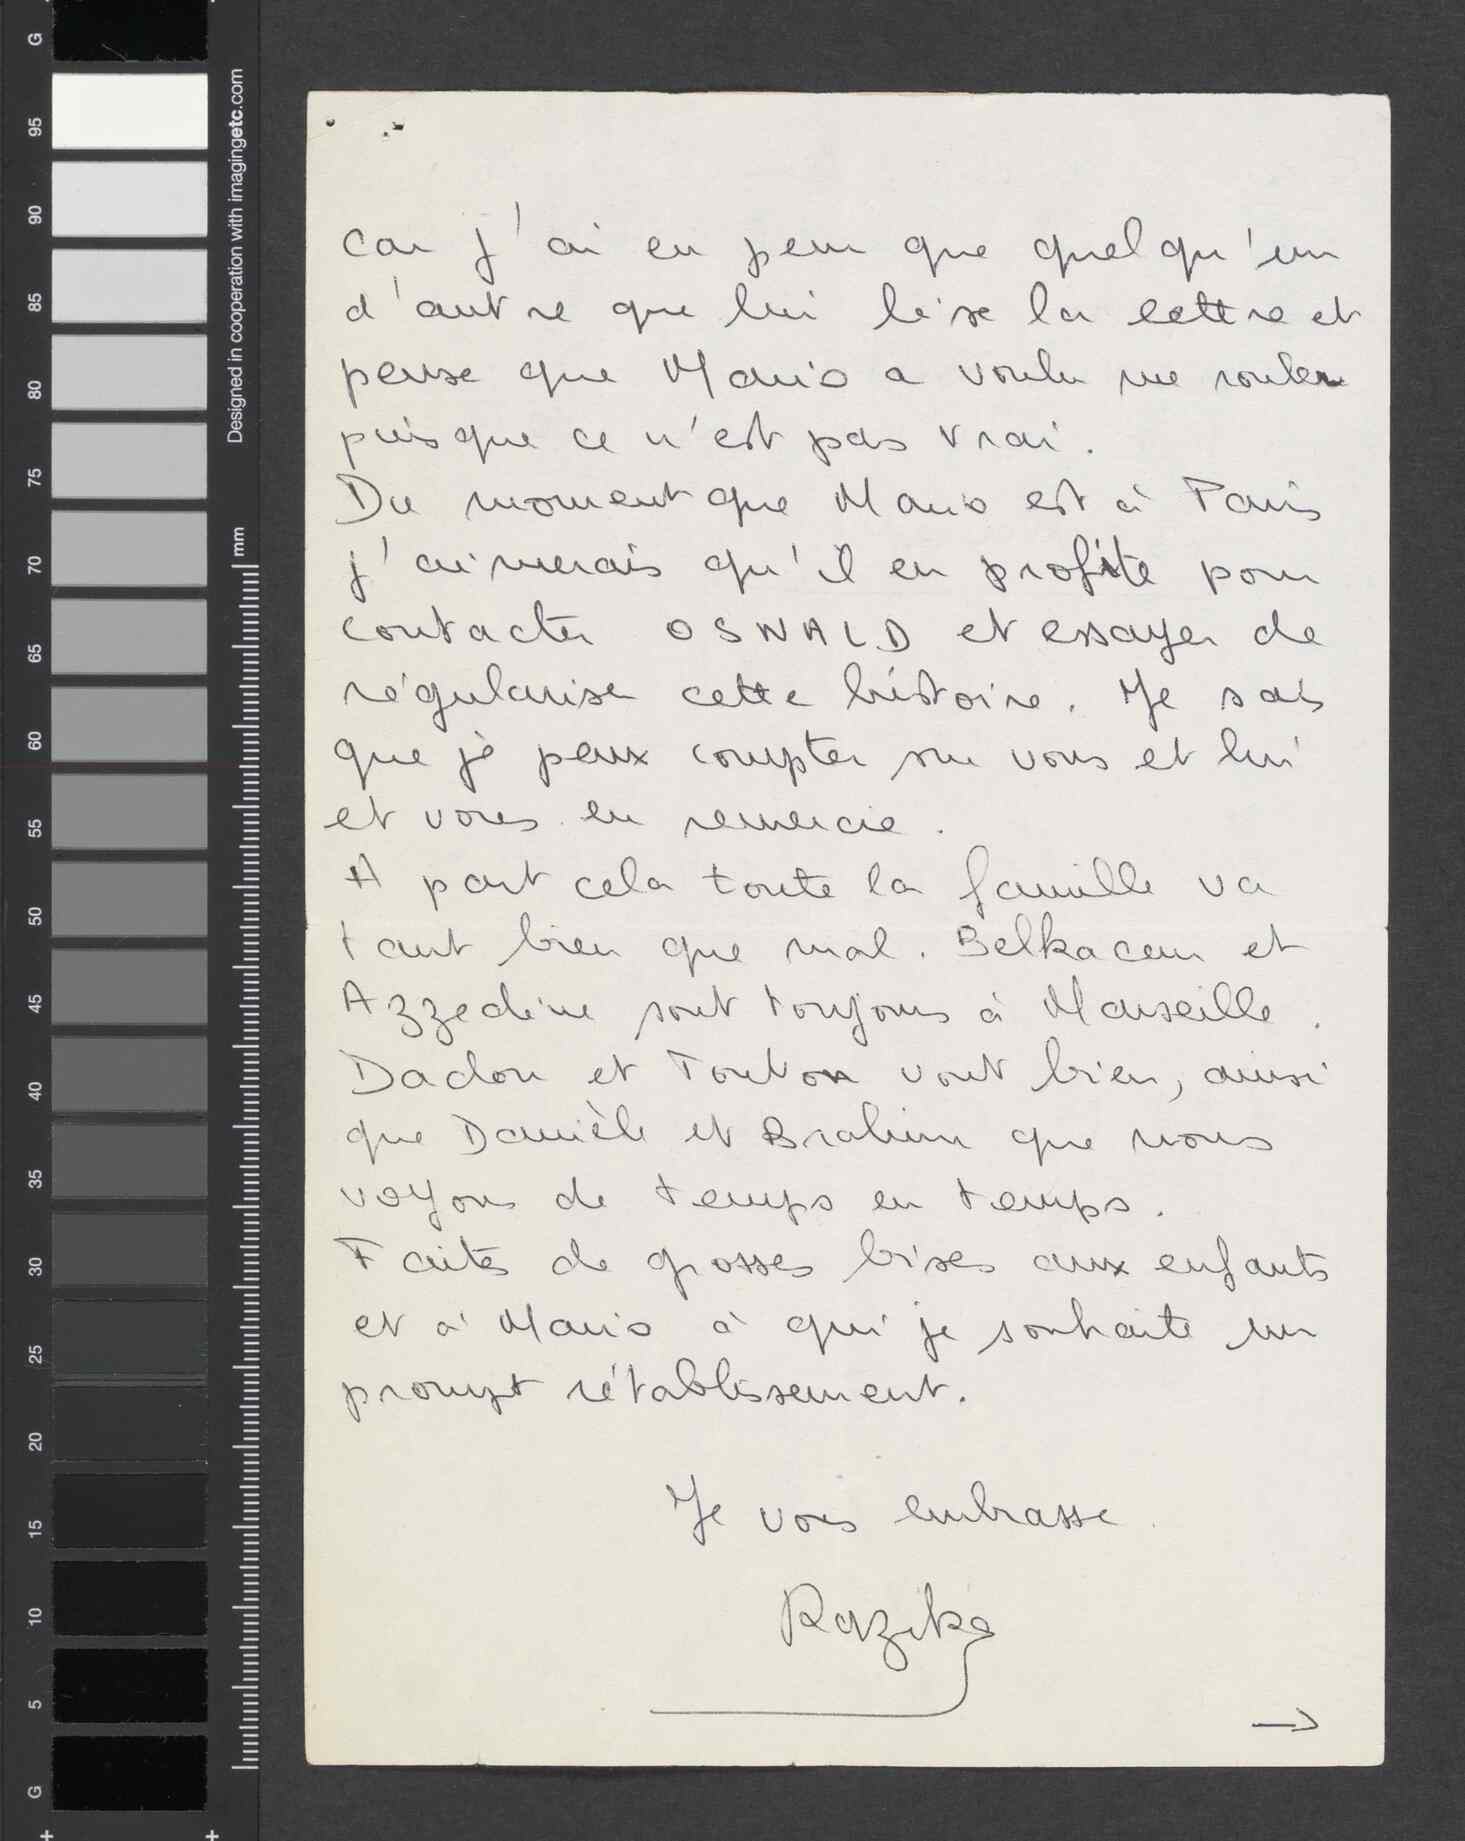 G
95
90
85
80
75
70
65
60
55
50
45
40
35
30
25
20
15
10
5
G
Designed in cooperation with imagingetc.com
mm
car j'ai eu peur que quelqu'un
d'autre que lui lise la lettre et
pense que Mario a voulu me rouler
puisque ce n'est pas vrai.
Du moment que Mario est à Paris
j'aimerais qu'il en profite pour
contacter OSWALD et essayer de
régulariser cette histoire. Je sais
que je peux compter sur vous et lui
et vous en remercie.
A part cela toute la famille va
tant bien que mal. Belkacem et
Azzedine sont toujours à Marseille.
Dadou et Tonton vont bien, ainsi
que Danièle et Brahim que nous
voyons de temps en temps.
Faites de grosses bises aux enfants
et à Mario à qui je souhaite un
prompt rétablissement.
Je vous embrasse.
Razika
→